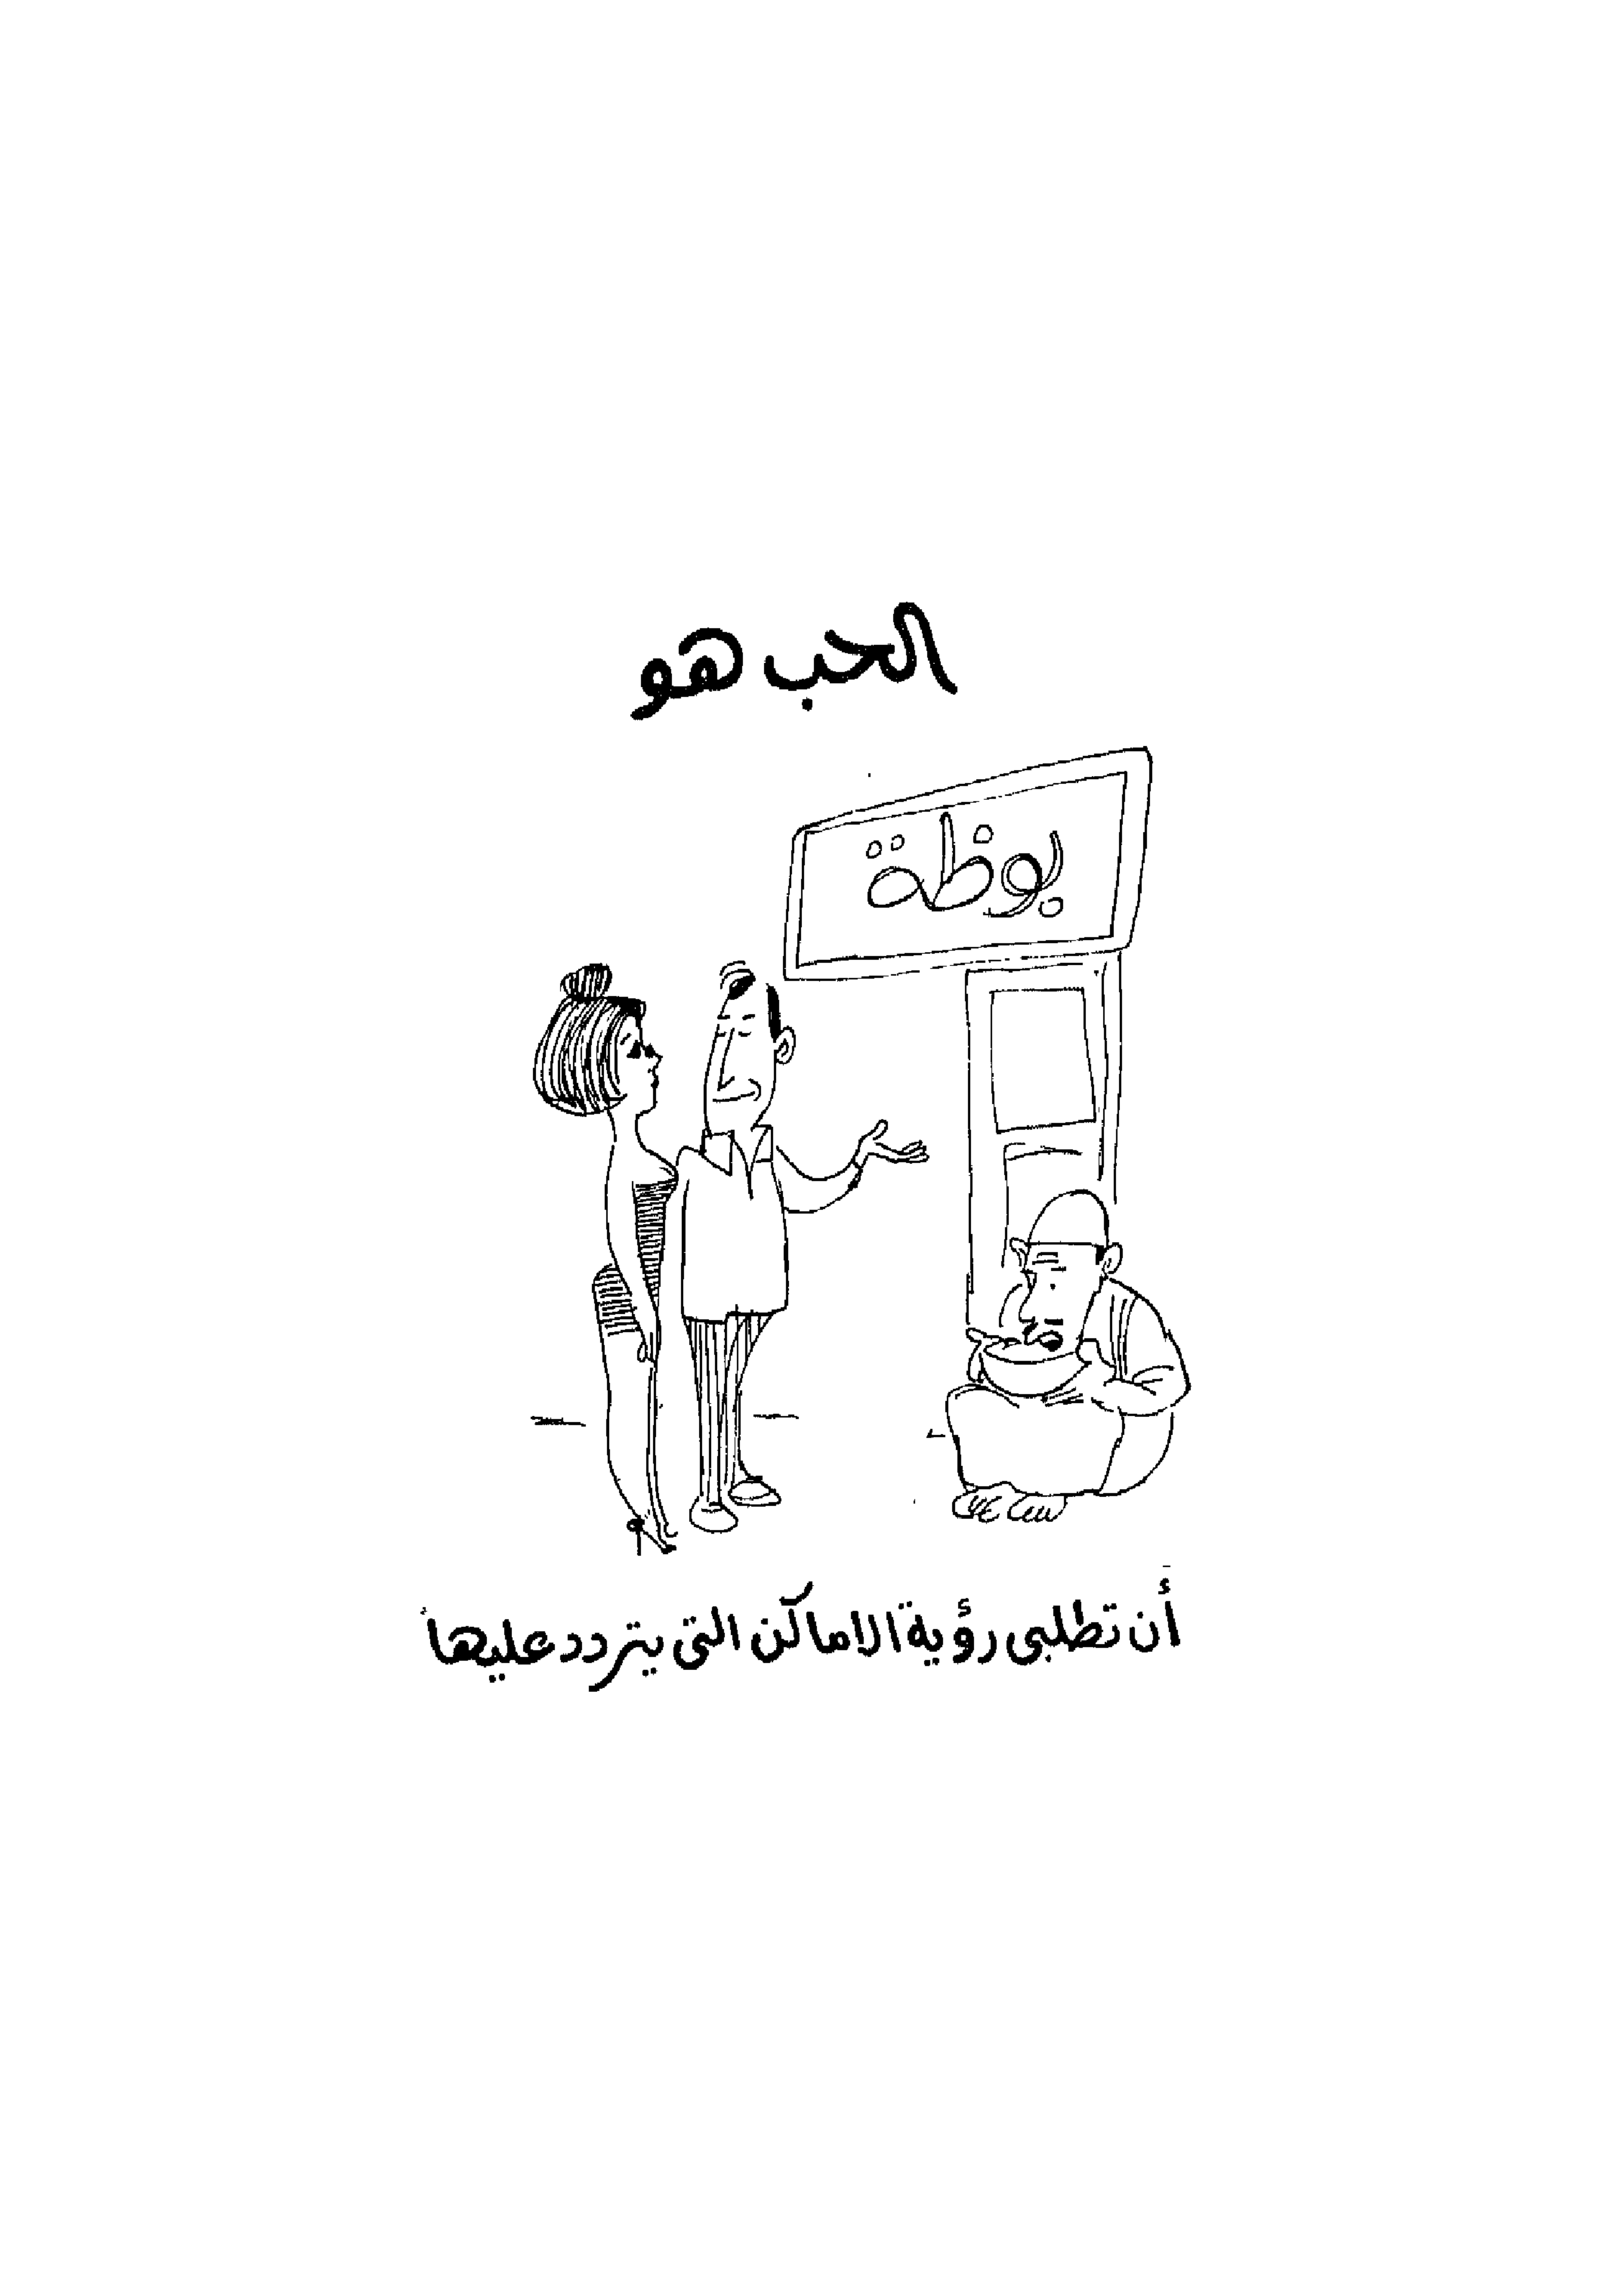 الحب هو
بوظة
أن تطلبى رؤية الاماكن التى يتردد عليها